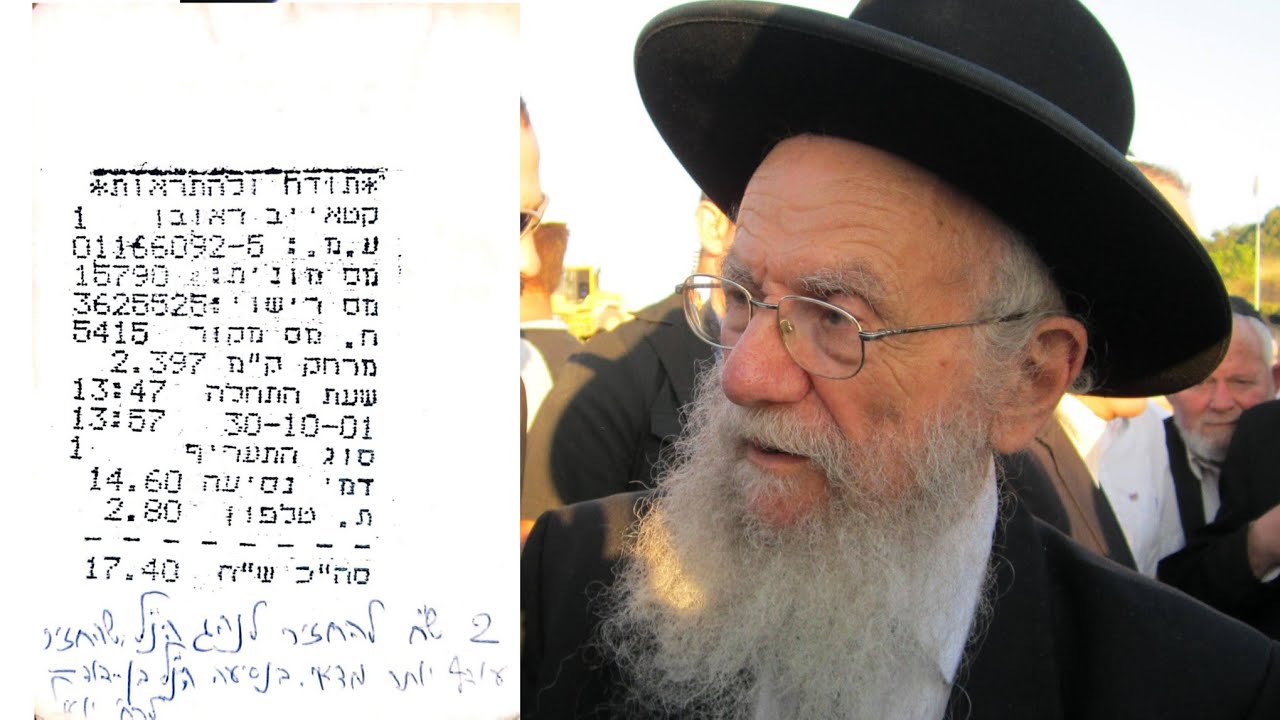 *תודה ולהתראות*
קטאייב ראובן 1
ע.מ.: 01166092-5
מס מונית: 15790
מס רישוי: 3625525
ח. מס מקור 5415
מרחק ק"מ 2.397
שעת התחלה 13:47
30-10-01 13:57
סוג התעריף 1
דמי נסיעה 14.60
ת. טלפון 2.80
- - - - - - - -
סה"כ ש"ח 17.40
2 ש"ח להחזיר לנהג הנ"ל שהחזיר
עודף יותר מדאי. בנסיעה הנ"ל